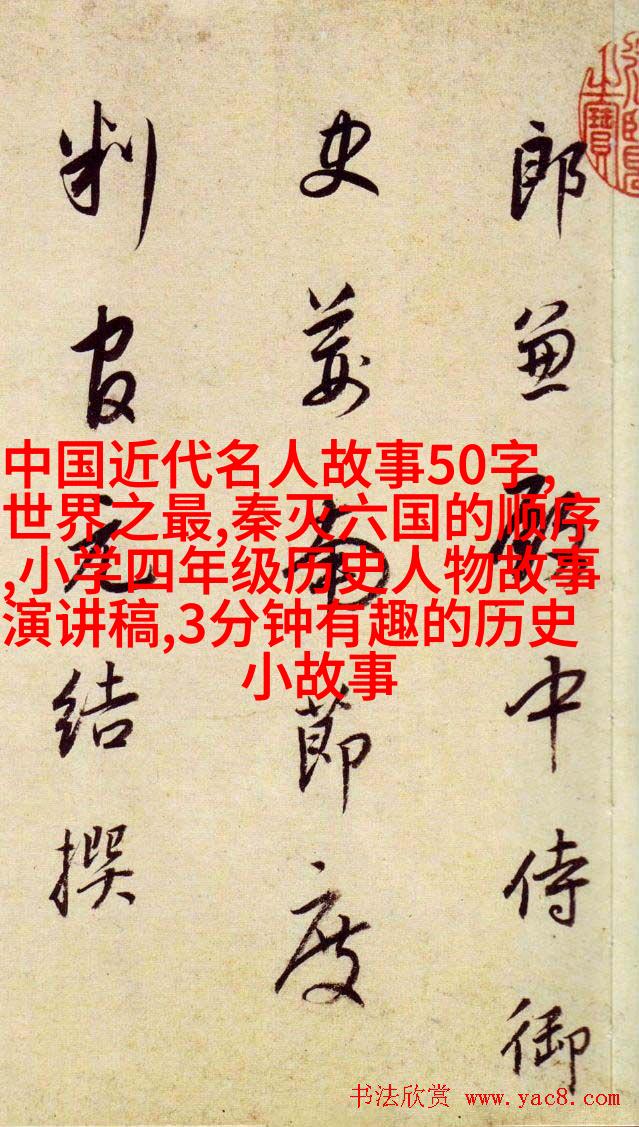 郎兼殿中侍御
史荊南節度
判官元結撰
中国近代名人故事50字,
世界之最,秦灭六国的顺序
,小学四年级历史人物故事
演讲稿,3分钟有趣的历史
小故事
书法欣赏 www.yac8.com